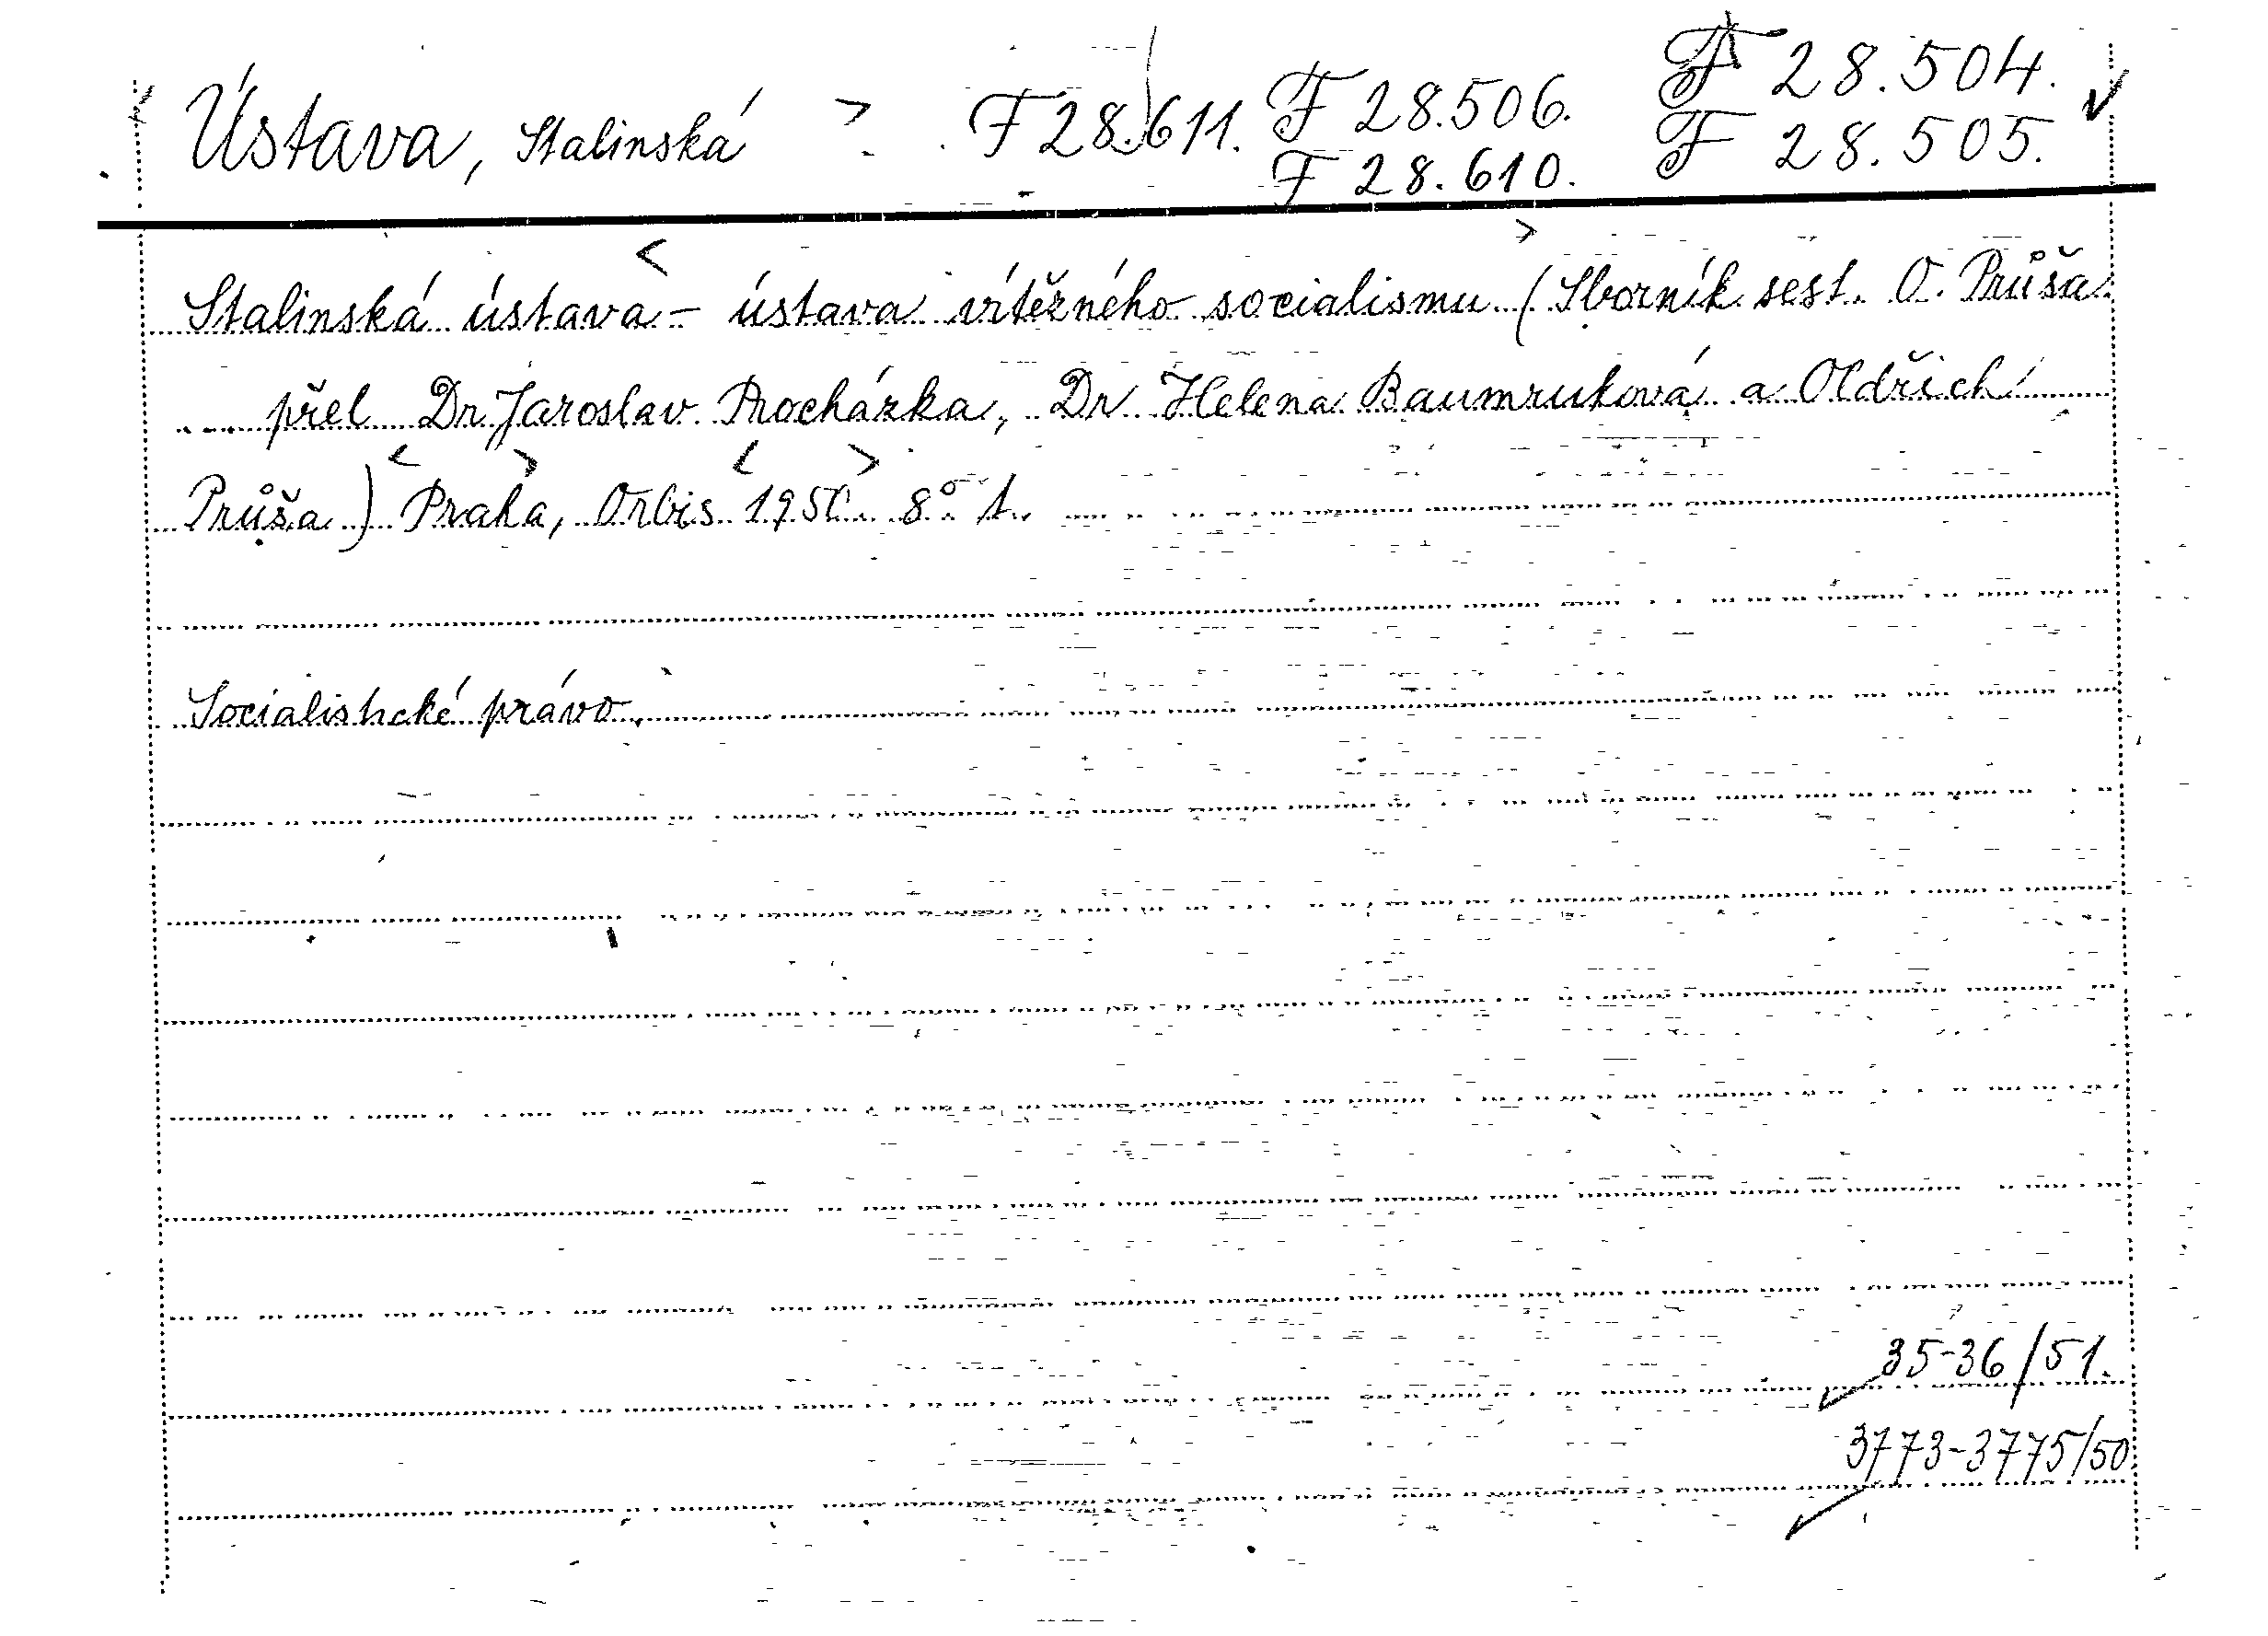 Ústava, Stalinská F 28.611. F 28.506. F 28.504.
F 28.610. F 28.505.
Stalinská ústava - ústava vítězného socialismu (Sborník sest. O. Průša
přel Dr. Jaroslav Procházka, Dr Helena Baumruková a Oldřich
Průša) Praha, Orbis 1950. 8°
Socialistické právo.
35-36/51.
3773-3775/50